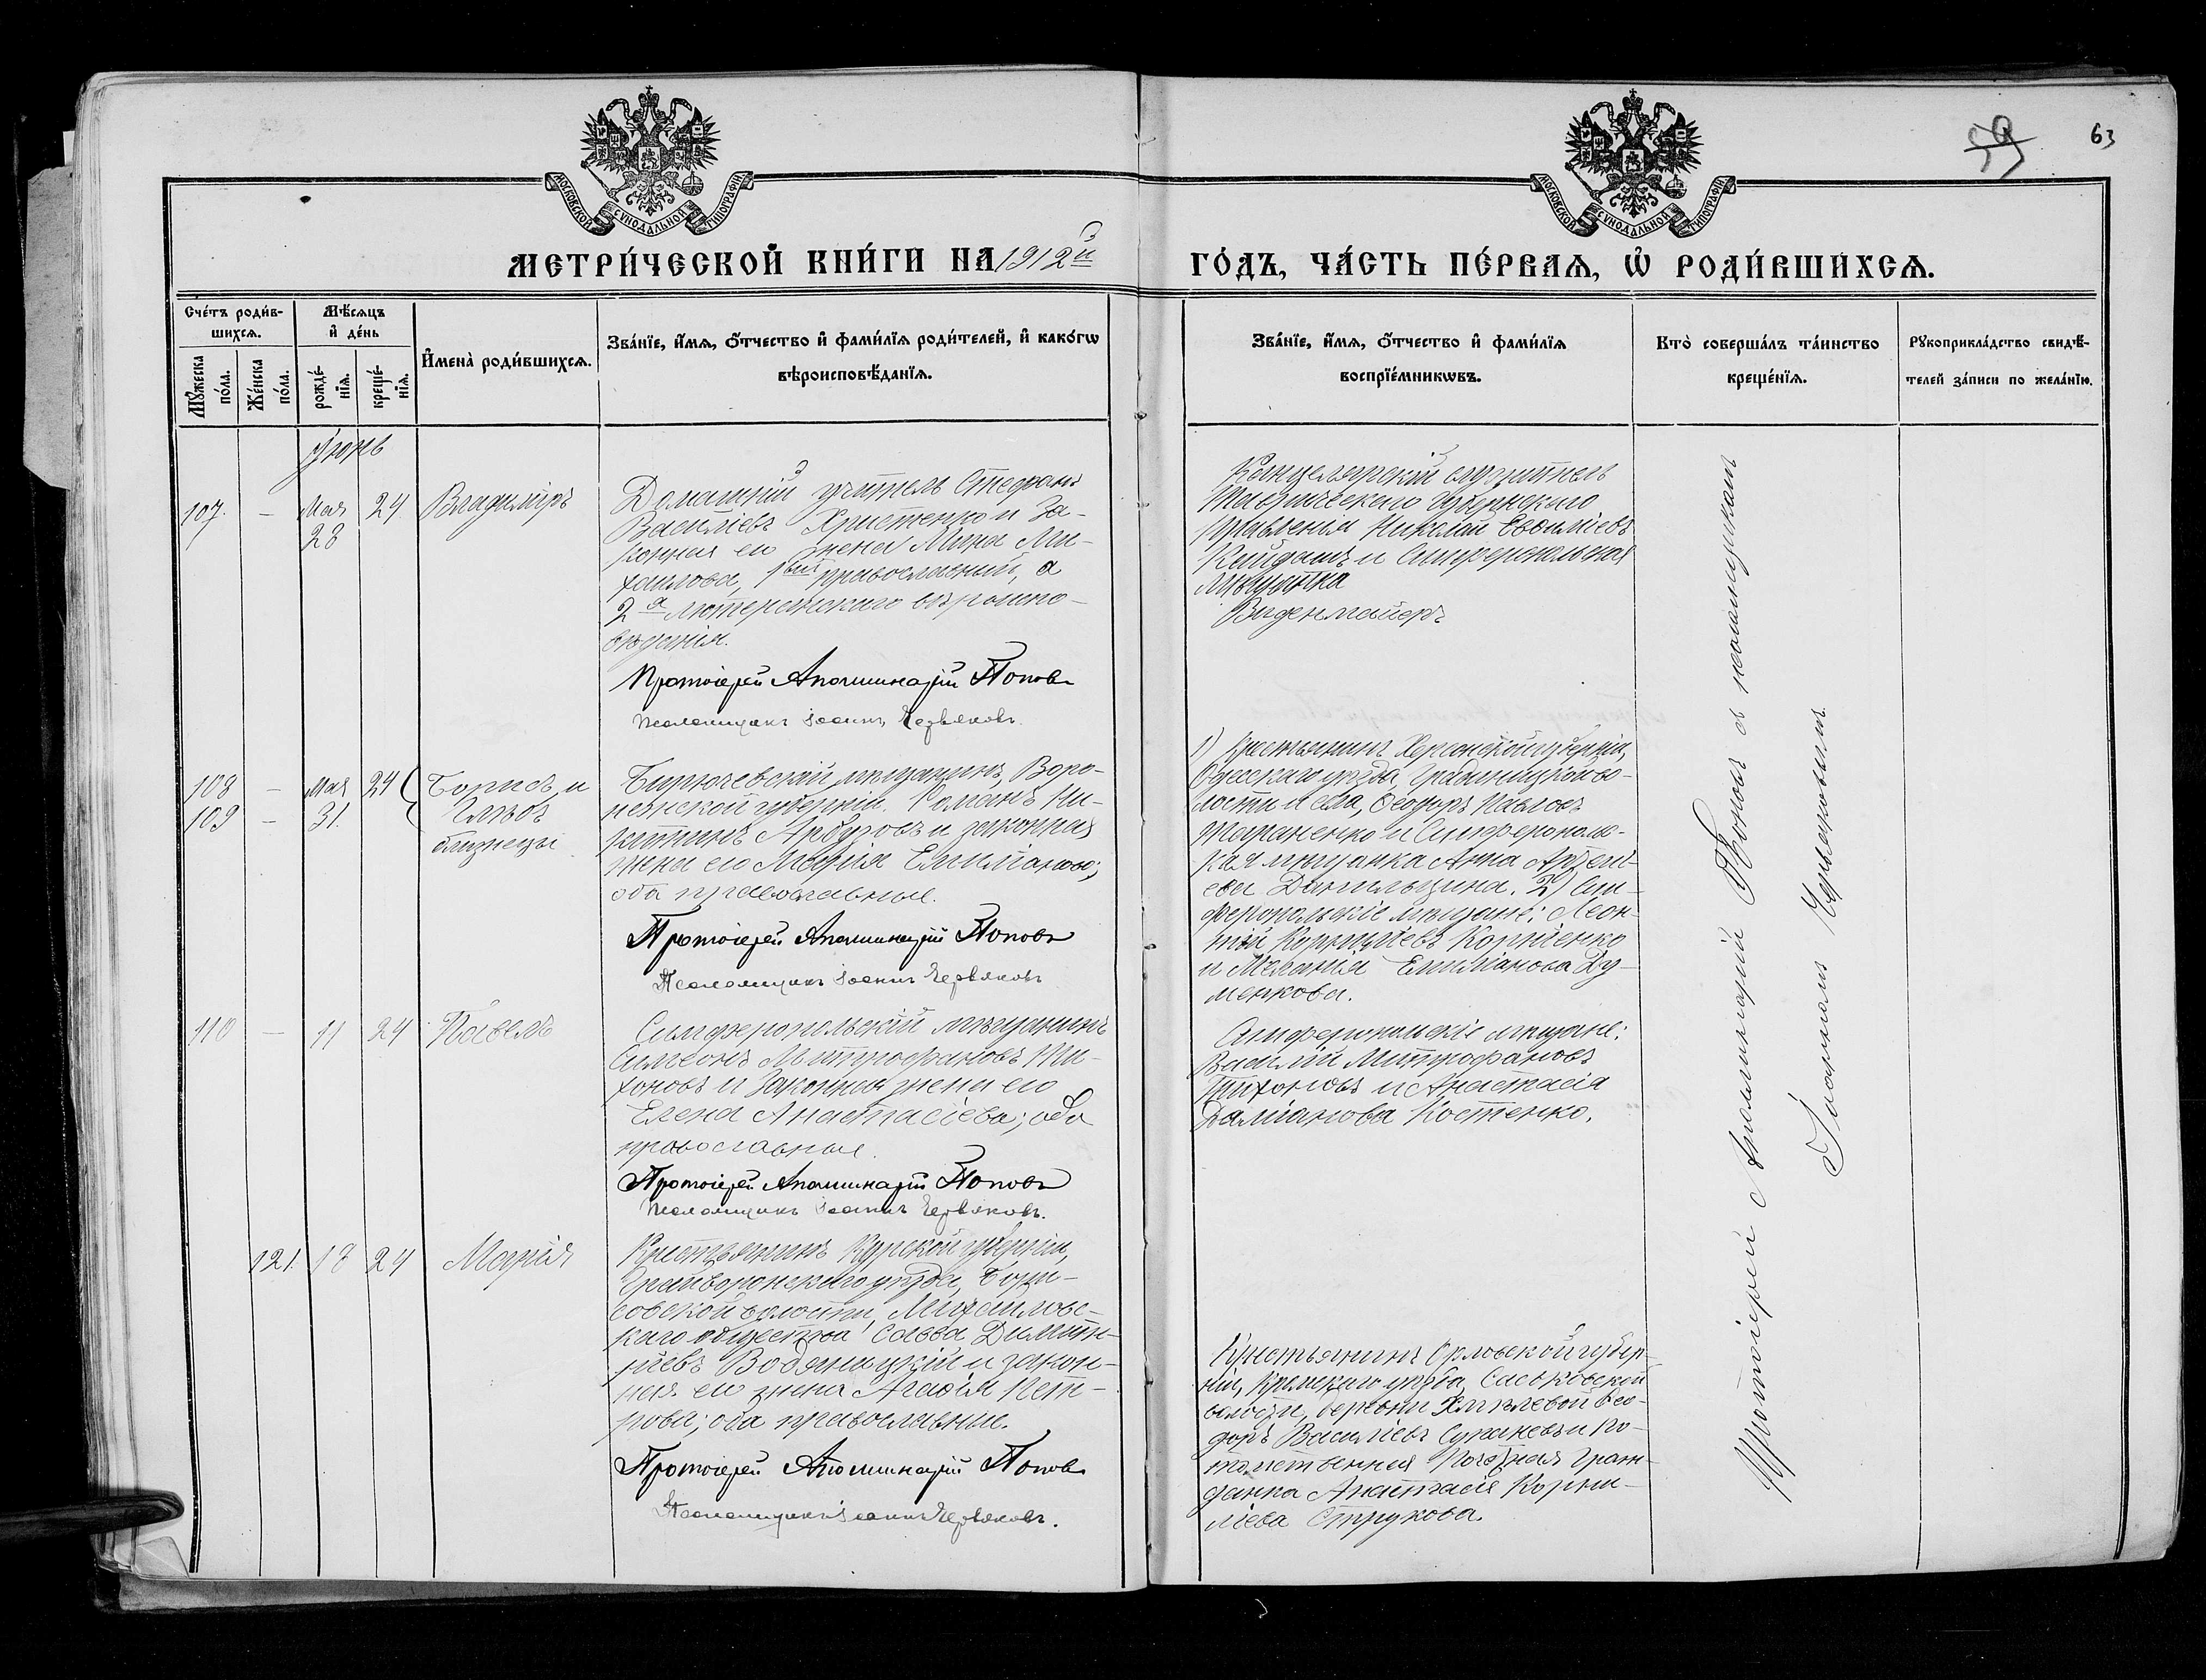 МОСКОВСКОЙ СѴНОДАЛЬНОЙ ТИПОГРАФІИ
МОСКОВСКОЙ СѴНОДАЛЬНОЙ ТИПОГРАФІИ
59 63
МЕТРИ́ЧЕСКОЙ КНИ́ГИ НА 1912й
ГО́ДЪ, ЧА́СТЬ ПЕ́РВАЯ, Ѡ҆ РОДИ́ВШИХСЯ.
Сче́тъ роди́в-
шихся.
Мꙋжеска
по́ла.
Же́нска
по́ла.
Мѣ́сяцъ
и҆ де́нь
рожде́-
нїя.
креще́-
нїя.
И҆мена̀ роди́вшихся.
Зва́нїе, и҆́мя, о҆́тчество и҆ фами́лїя роди́телей, и҆ како́гѡ
вѣроисповѣ́данїя.
Зва́нїе, и҆́мя, о҆́тчество и҆ фами́лїя
воспрїе́мникѡвъ.
Кто̀ соверша́лъ та́инство
креще́нїя.
Рꙋкоприкла́дство свидѣ́-
телей за́писи по жела́нїю.
Іюнь
107. - Мая 24 Владиміръ
28
Домашній учитель Стефанъ
Василіевъ Христенко и за-
конная его жена Мина Ми-
хаилова, 1вый православный, а
2а лютеранскаго вѣроиспо-
вѣданія.
Протоіерей Аполлинарій Поповъ
Псаломщикъ Іоаннъ Червяковъ.
Канцелярскій служитель
Таврическаго Губернскаго
Правленія Николай Евфиміевъ
Кайдашъ и Симферопольская
мѣщанка
Виденмайеръ
108 - Мая 24 Борисъ и
109 - 31. Глѣбъ
близнецы
Бирючевскій мѣщанинъ, Воро-
нежской губерніи Романъ Ни-
китинъ Арбузовъ и законная
жена его Марія Емиліанова;
оба православные.
Протоіерей Аполлинарій Поповъ
Псаломщикъ Іоаннъ Червяковъ
1) Крестьянинъ Херсонской губерніи,
Одесскаго уѣзда, во-
лости и села, Ѳеодоръ Павловъ
Тараненко и Симферополь-
ская мѣщанка Анна Арсені-
ева Данильцина. 2) Сим-
феропольскіе мѣщане: Леон-
тій Корниліевъ Корніенко
и Меланія Емиліанова Ду-
менкова.
110 - 11 24 Павелъ
Симферопольскій мѣщанинъ
Симеонъ Митрофановъ Ти-
хоновъ и законная жена его
Елена Анастасіева; оба
православные.
Протоіерей Аполлинарій Поповъ
Псаломщикъ Іоаннъ Червяковъ.
Симферопольскіе мѣщане:
Василій Митрофановъ
Тихоновъ и Анастасія
Даміанова Костенко.
121. 18 24 Марія
Крестьянинъ Курской губерніи,
Грайворонскаго уѣзда, Бори-
совской волости, Михаиловс-
каго общества Савва Димит-
ріевъ Водяницкій и закон-
ная его жена Агафія Пет-
рова; оба православные.
Протоіерей Аполлинарій Поповъ
Псаломщикъ Іоаннъ Червяковъ.
Крестьянинъ Орловской губер-
ніи, Кромскаго уѣзда, Саськовской
волости, деревни Хмѣлевой Ѳео-
доръ Василіевъ и По-
томственная Почетная Граж-
данка Анастасія Корни-
ліева Струкова.
Протоіерей Аполлинарій Поповъ съ псаломщикомъ
Іоанномъ Червяковымъ